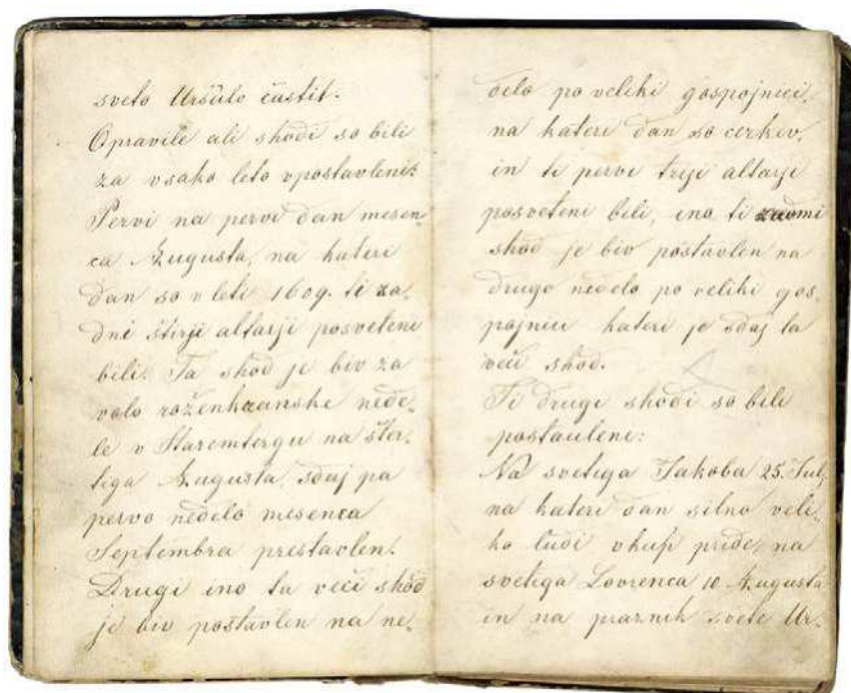 sveto Uršulo častit.
Opravile ali shodi so bili
za vsako leto vpostavleni:
Pervi na pervi dan mesen-
ca Augusta, na kateri
dan so v leti 1609. ti za-
dni štirji altarji posveteni
bili. Ta shod je biv za
volo roženkranske nede-
le v Staremtergu na šter-
tiga Augusta, sdaj pa
pervo nedelo mesenca
Septembra prestavlen.
Drugi ino ta veči shod
je biv postavlen na ne-
delo po veliki gospojnici,
na kateri dan so cerkev,
in ti pervi trije altarji
posveteni bili, ino ti
shod je biv postavlen na
drugo nedelo po veliki gos-
pojnici kateri je sdaj ta
veči shod.
Ti drugi shodi so bili
postauleni:
Na svetiga Jakoba 25. Julj
na kateri dan silno veli-
ko ludi vkup pride, na
svetiga Lovrenca 10 Augusta
in na praznik svete Ur-